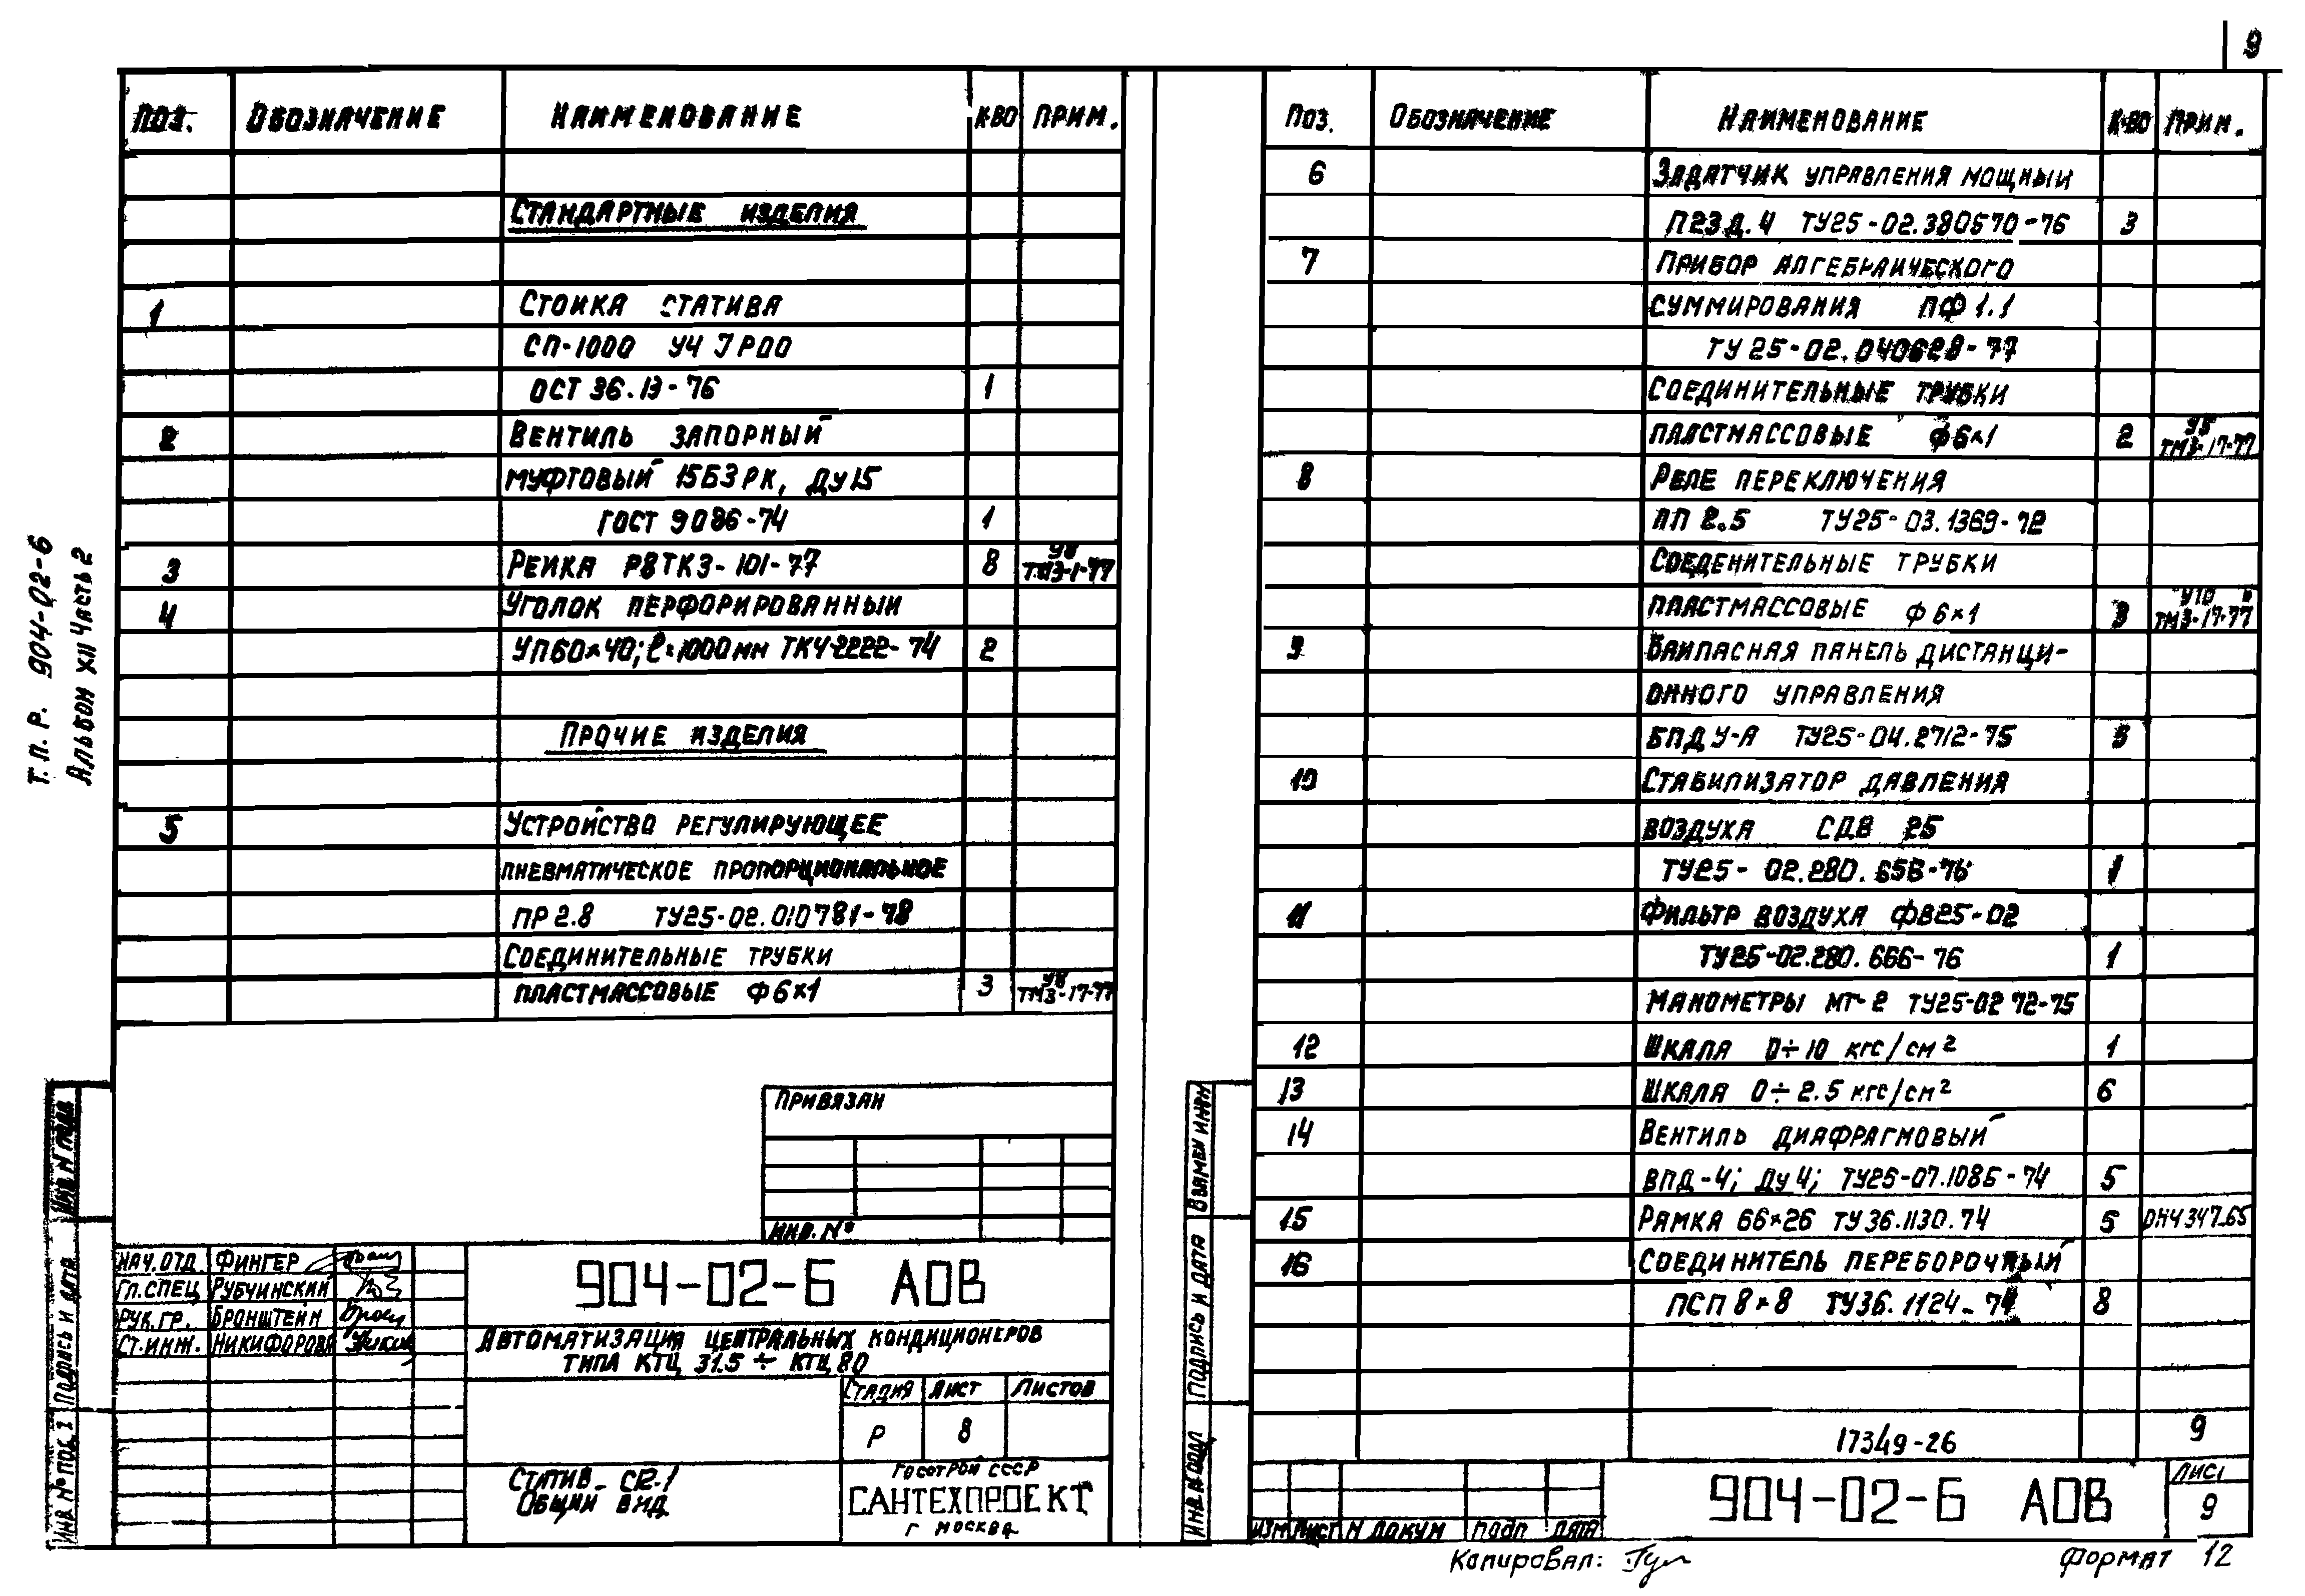 9
Т.П.Р. 904-02-6
Альбом XII Часть 2
Поз. Обозначение Наименование К-во Прим.
Стандартные изделия
1 Стойка статива
СП-1000 У4 JP00
ОСТ 36.13-76 1
2 Вентиль запорный
муфтовый 15Б3РК, Ду15
ГОСТ 9086-74 1
У8
3 Рейка Р8ТК3-101-77 8 ТМ3-1-77
4 Уголок перфорированный
УП60×40; ℓ=1000мм ТК4-2222-74 2
Прочие изделия
5 Устройство регулирующее
пневматическое пропорциональное
ПР 2.8 ТУ25-02.010781-78
Соединительные трубки
У8
пластмассовые Ф6×1 3 ТМ3-17-77
Привязан
Инв. №
Нач. отд. Фингер
Гл. спец. Рубчинский
Рук. гр. Бронштейн
Ст. инж. Никифорова
904-02-6 АОВ
Автоматизация центральных кондиционеров
типа КТЦ 31.5 ÷ КТЦ 80
Стадия Лист Листов
Р 8
Статив СП-1
Общий вид
Госстрой СССР
САНТЕХПРОЕКТ
г Москва
Подпись и дата
Поз. Обозначение Наименование К-во Прим.
6 Задатчик управления мощный
П23Д.4 ТУ25-02.380670-76 3
7 Прибор алгебраического
суммирования ПФ1.1
ТУ25-02.040628-77
Соединительные трубки
У5
пластмассовые Ф6×1 2 ТМ3-17-77
8 Реле переключения
ПП 2.5 ТУ25-03.1369-72
Соеденительные трубки
У10
пластмассовые Ф6×1 3 ТМ3-17-77
9 Байпасная панель дистанци-
онного управления
БПДУ-А ТУ25-04.2712-75 3
10 Стабилизатор давления
воздуха СДВ 25
ТУ25-02.280.656-76 1
11 Фильтр воздуха ФВ25-02
ТУ25-02.280.666-76 1
Манометры МТ-2 ТУ25-02 72-75
12 Шкала 0÷10 кгс/см² 1
13 Шкала 0÷2.5 кгс/см² 6
14 Вентиль диафрагмовый
ВПД-4; Ду 4; ТУ25-07.1085-74 5
15 Рамка 66×26 ТУ36.1130.74 5 ОН4347-65
16 Соединитель переборочный
ПСП 8×8 ТУ36.1124-74 8
17349-26 9
Взамен инв№
Подпись и дата
Инв.№ подл
Изм Лист № докум Подп Дата
904-02-6 АОВ
Лист
9
Копировал:
Формат 12